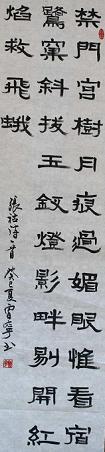 禁門宮樹月痕過媚眼惟看宿
鷺窠斜拔玉釵燈影畔剔開紅
焰救飛蛾
張祜詩一首 癸巳夏